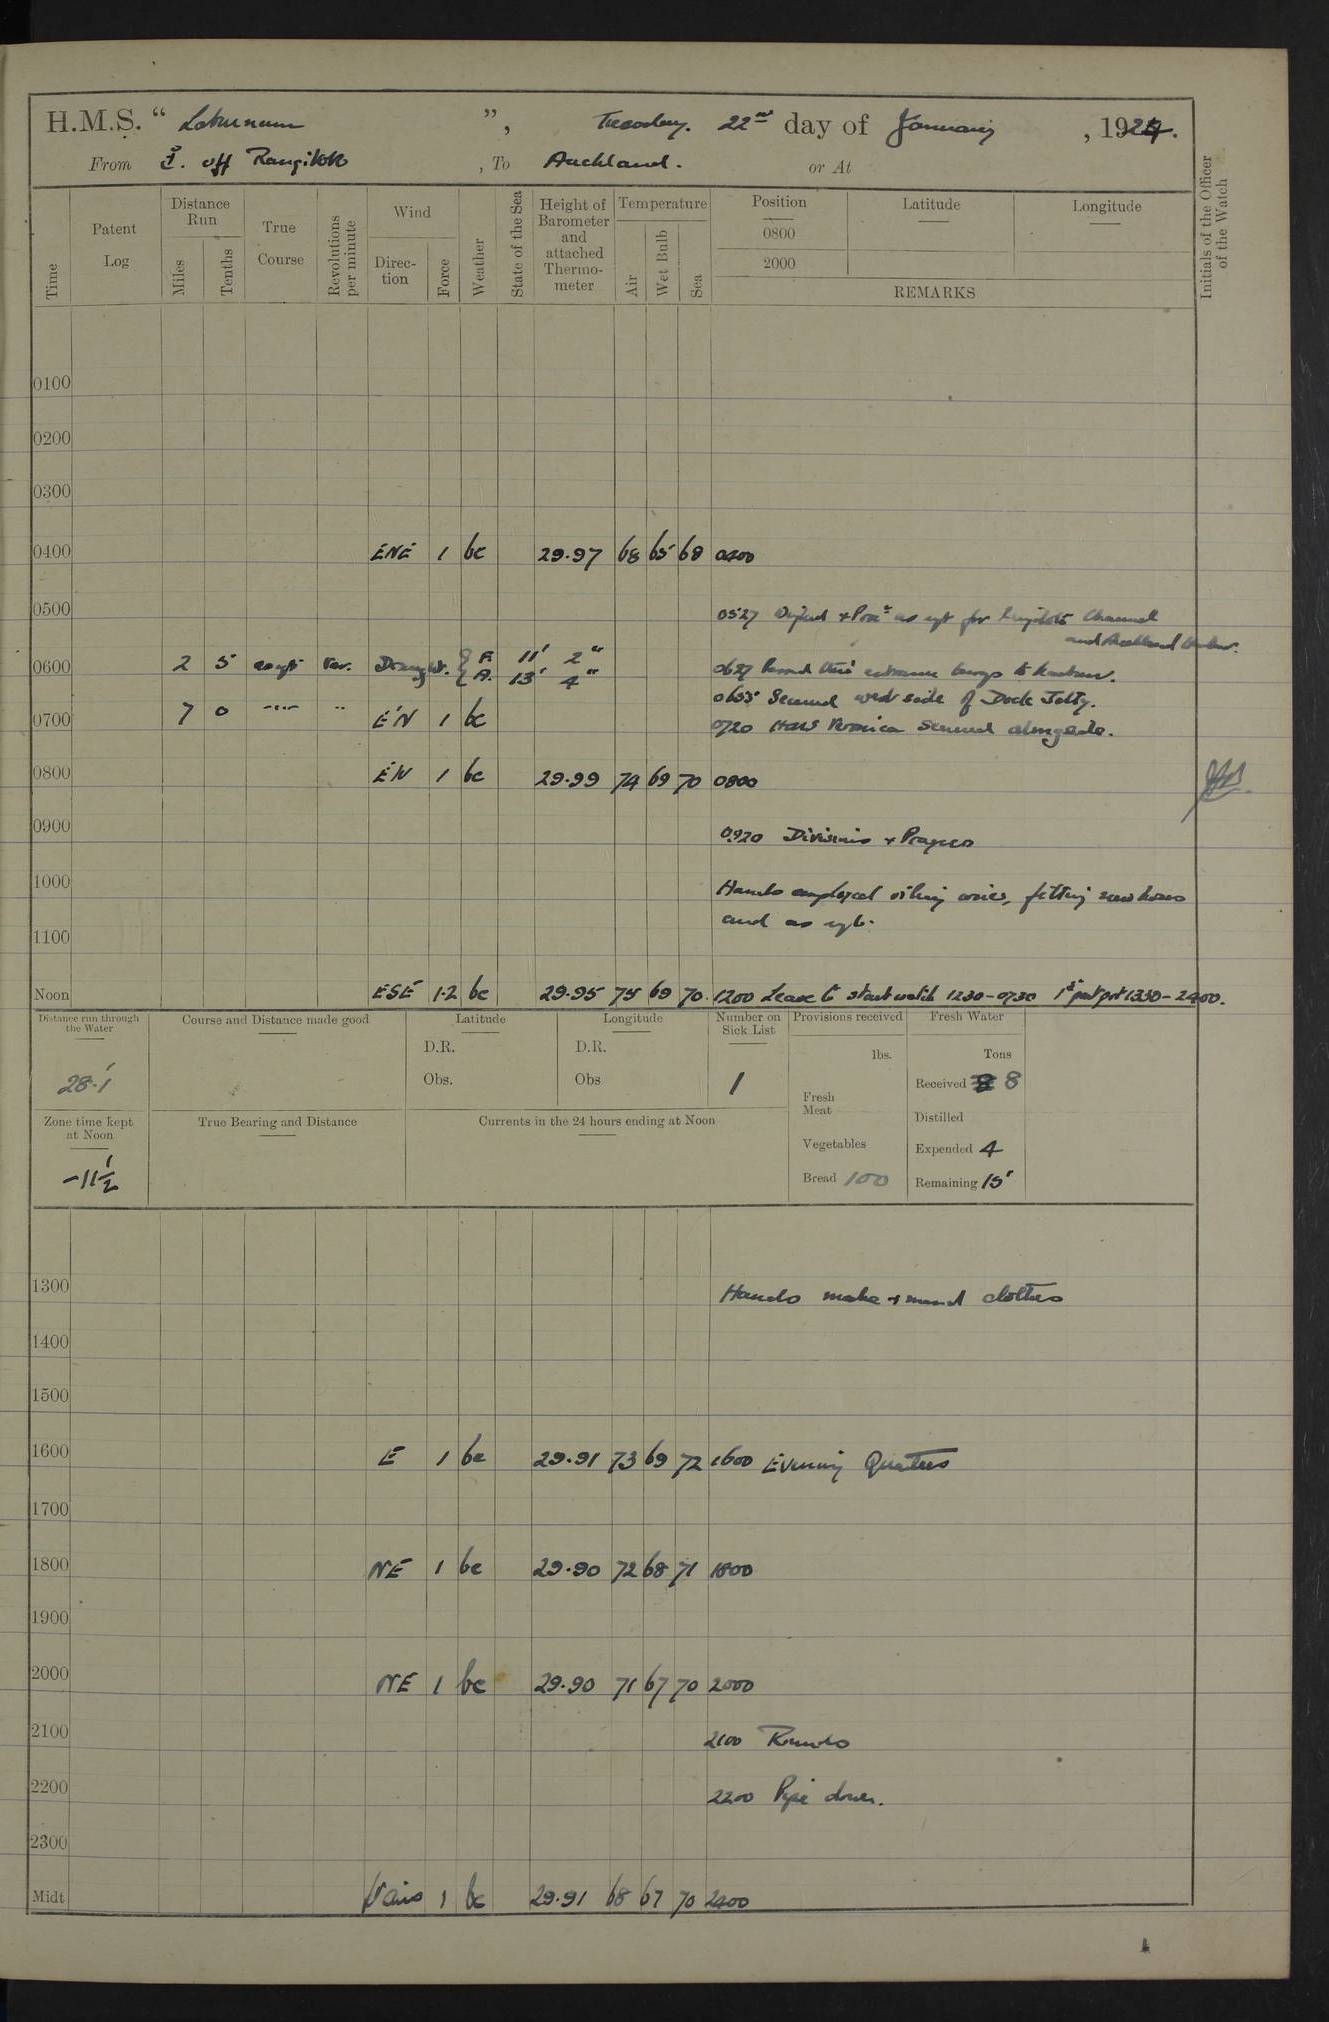 H.M.S. “ Laburnum ”, Tuesday. 22nd day of January, 1924.
From off Rangitoto, To Auckland. or At
Time
Patent Log
Distance Run
Miles
Tenths
True Course
Revolutions per minute
Wind
Direction
Force
Weather
State of the Sea
Height of Barometer and attached Thermometer
Temperature
Air
Wet Bulb
Sea
Position
0800
2000
Latitude
Longitude
REMARKS
Initials of the Officer of the Watch
0100
0200
0300
0400 ENE 1 bc 29.97 68 65 68 0400
0500
0527 Weighed & Proc as reqt for Rangitoto Channel
and Auckland Harbour.
0600 2 5 as reqt Var. Draught. F. 11' 2"
A. 13' 4"
0637 Passed thro' entrance buoys to harbour.
0655 Secured side of Dock Jetty.
0700 7 0 " " E'N 1 bc
0720 HMS Veronica secured alongside.
0800 E'N 1 bc 29.99 74 69 70 0800
0900
0920 Divisions & Prayers
1000
Hands employed oiling wires, fitting new
and as reqt.
1100
Noon ESE 1-2 bc 29.95 75 69 70 1200 Leave to watch 1230-0730 1st part 1330-2400.
Distance run through the Water
28.1
Course and Distance made good
Latitude
D.R.
Obs.
Longitude
D.R.
Obs
Number on Sick List
1
Provisions received
lbs.
Fresh Meat
Vegetables
Bread 100
Fresh Water
Tons
Received 8
Distilled
Expended 4
Remaining 15
Zone time kept at Noon
-11½
True Bearing and Distance
Currents in the 24 hours ending at Noon
1300 Hands make & mend clothes
1400
1500
1600 E 1 bc 29.91 73 69 72 1600 Evening Quarters
1700
1800 NE 1 bc 29.90 72 68 71 1800
1900
2000 NE 1 bc 29.90 71 67 70 2000
2100 2100 Rounds
2200 2200 Pipe down.
2300
Midt Vairs 1 bc 29.91 68 67 70 2400